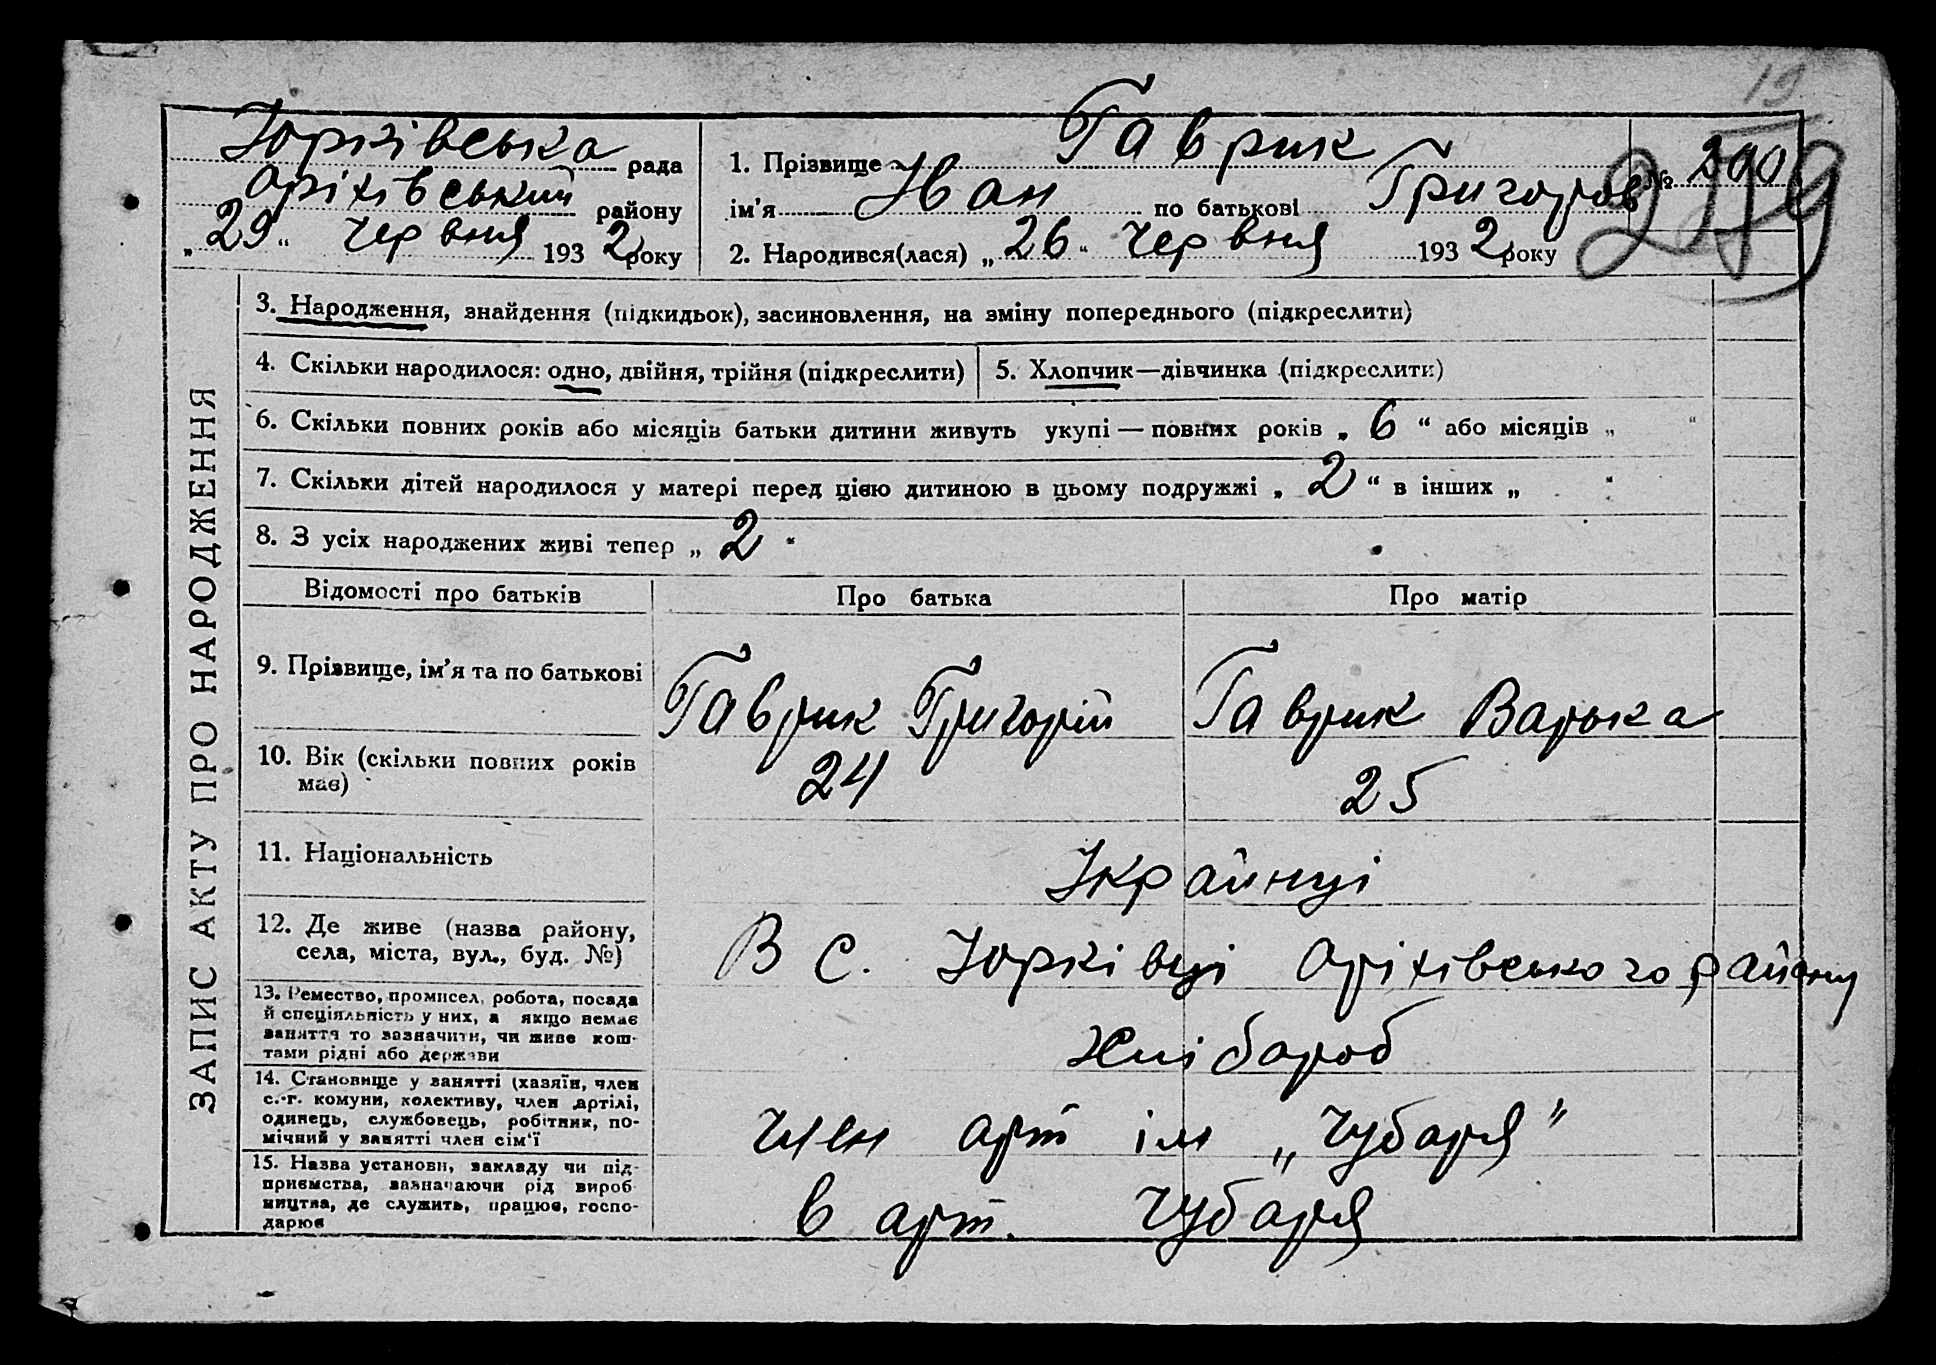 19
Юрківська рада
Оріхівський району
„29“ червня 1932 року
1. Прізвище Гаврик
ім'я Іван по батькові Григоров
№
2. Народився(лася) „26“ червня 1932 року
3. Народження, знайдення (підкидьок), засиновлення, на зміну попереднього (підкреслити)
4. Скільки народилося: одно, двійня, трійня (підкреслити)
5. Хлопчик—дівчинка (підкреслити)
6. Скільки повних років або місяців батьки дитини живуть укупі — повних років „6“ або місяців „ “
7. Скільки дітей народилося у матері перед цією дитиною в цьому подружжі „2“ в інших „ “
8. З усіх народжених живі тепер „2“
ЗАПИС АКТУ ПРО НАРОДЖЕННЯ
Відомості про батьків Про батька Про матір
9. Прізвище, ім'я та по батькові Гаврик Григорій Гаврик Варька
10. Вік (скільки повних років
має) 24 25
11. Національність Українці
12. Де живе (назва району,
села, міста, вул., буд. №) В с. Юрківці Оріхівського району
13. Ремество, промисел, робота, посада
й спеціяльність у них, а якщо немає
заняття то зазначити, чи живе кош-
тами рідні або держави Хлібороб
14. Становище у занятті (хазяїн, член
с.-г. комуни, колективу, член артілі,
одинець, службовець, робітник, по-
мічний у занятті член сім'ї член арт ім „Чубаря“
15. Назва установи, закладу чи під-
приємства, зазначаючи рід вироб
ництва, де служить, працює, госпо-
дарює в арт. Чубаря